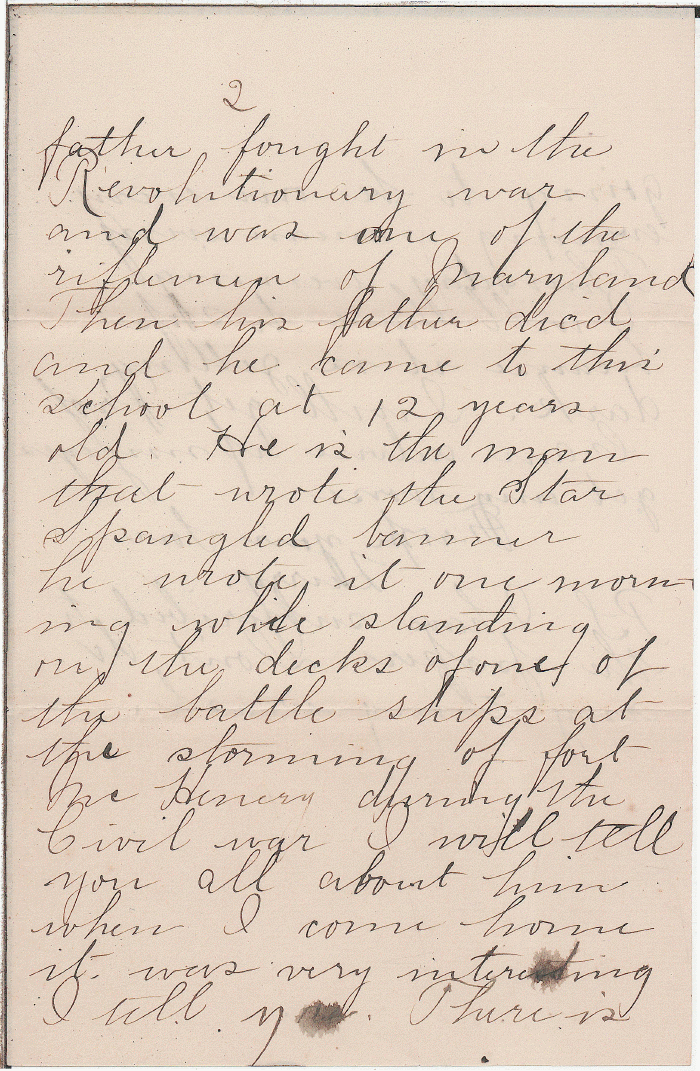 2
father fought in the
Revolutionary war
and was one of the
riflemen of Maryland
Then his father died
and he came to this
school at 12 years
old. He is the man
that wrote the Star
Spangled banner
he wrote it one morn-
ing while standing
on the decks of one of
the battle ships at
the storming of fort
Mc Henery during the
Civil war I will tell
you all about him
when I come home
it was very interesting
I tell you. There is